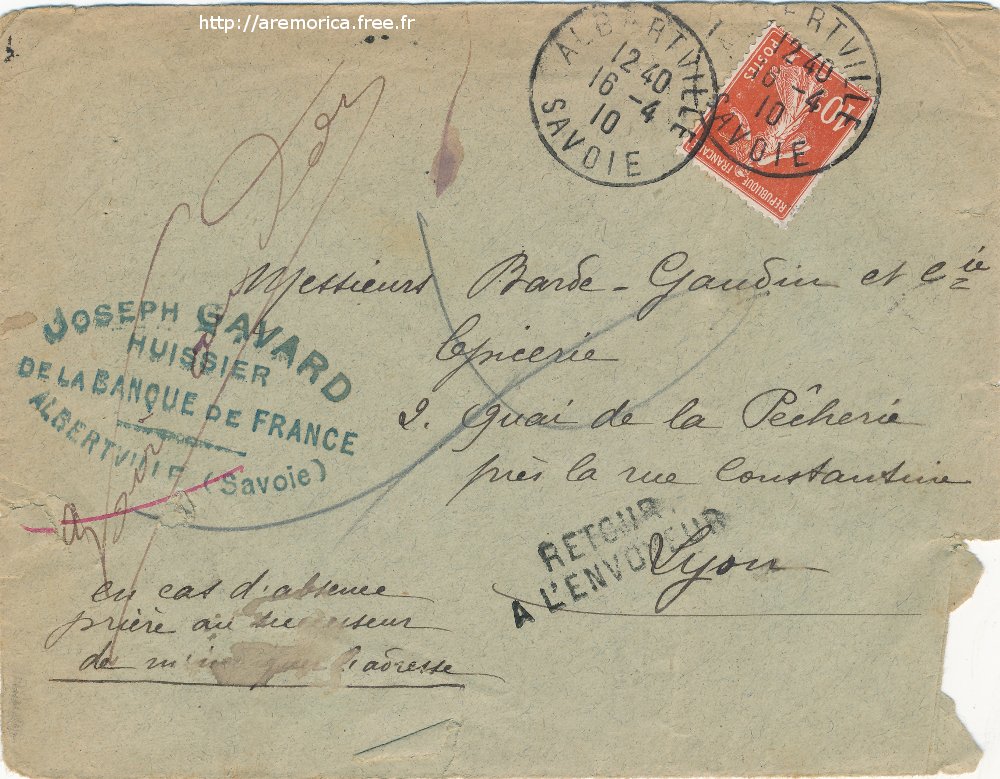 http://aremorica.free.fr
ALBERTVILLE
12 40
16 -4
10
SAVOIE
ALBERTVILLE
12 40
16 -4
10
SAVOIE
10
POSTES
REPUBLIQUE FRANCAISE
Messieurs Barde-Gaudin et Cie
Epicerie
2. quai de la Pêcherie
près la rue Constantine
Lyon
JOSEPH GAVARD
HUISSIER
DE LA BANQUE DE FRANCE
ALBERTVILLE (Savoie)
RETOUR
A L'ENVOYEUR
en cas d'absence
prière au successeur
de m'indiquer l'adresse